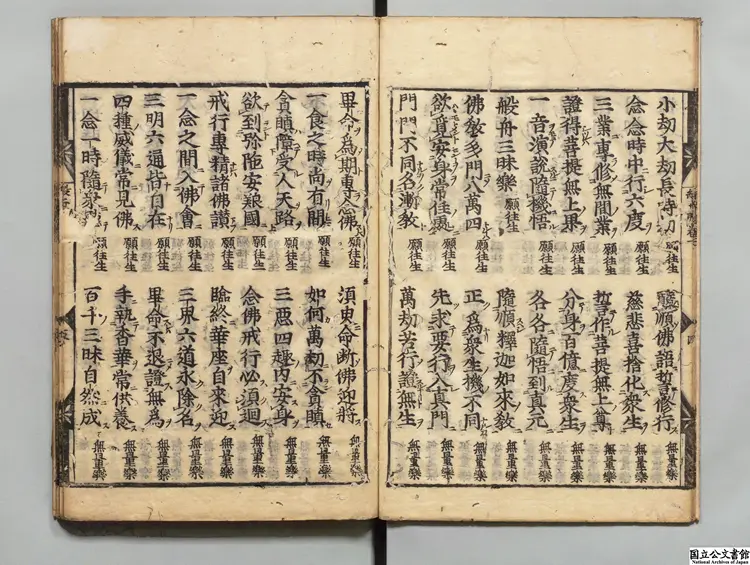 小劫大劫長時劫 願往生 隨順佛語誓修行 無量樂
念念時中行六度 願往生 慈悲喜捨化衆生 無量樂
三業專修無間業 願往生 誓作菩提無上尊 無量樂
證得菩提無上果 願往生 分身百億度衆生 無量樂
一音演說隨機悟 願往生 各各隨悟到真元 無量樂
般舟三昧樂 願往生 隨順釋迦如來教 無量樂
佛教多門八萬四 願往生 正爲衆生機不同 無量樂
欲覓安身常住處 願往生 先求要行入真門 無量樂
門門不同名漸教 願往生 萬劫苦行證無生 無量樂
畢命爲期專念佛 願往生 須臾命斷佛迎將 無量樂
一食之時尚有間 願往生 如何萬劫不貪瞋 無量樂
貪瞋障受人天路 願往生 三惡四趣内安身 無量樂
欲到弥陀安養國 願往生 念佛戒行必須迴 無量樂
戒行專精諸佛讃 願往生 臨終華座自來迎 無量樂
一念之間入佛會 願往生 三界六道永除名 無量樂
三明六通皆自在 願往生 畢命不退證無爲 無量樂
四種威儀常見佛 願往生 手執香華常供養 無量樂
一念一時隨衆 願往生 百千三昧自然成 無量樂
国立公文書館
National Archives of Japan